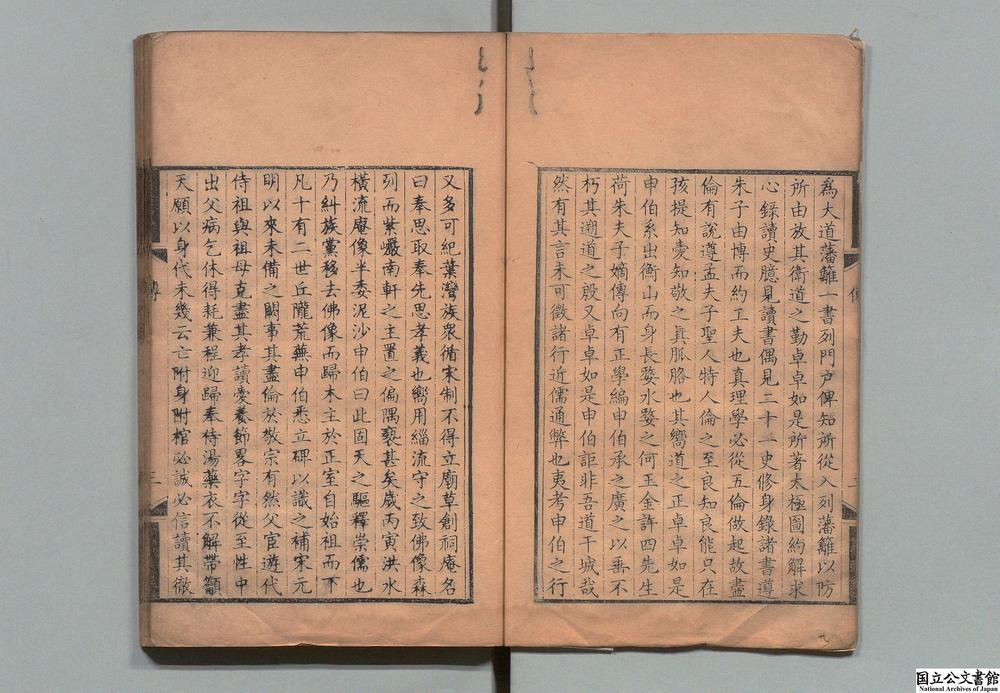 為大道藩籬一書列門戶俾知所從入列藩籬以防
所由放其衛道之勤卓卓如是所著太極圖約解求
心錄讀史臆見讀書偶見二十一史修身錄諸書遵
朱子由博而約工夫也真理學必從五倫做起故盡
倫有說遵孟夫子聖人特人倫之至良知良能只在
孩提知愛知敬之真脈胳也其嚮道之正卓卓如是
申伯系出衡山而身長婺水婺之何王金許四先生
荷朱夫子嫡傳向有正學編申伯承之廣之以垂不
朽其遡道之殷又卓卓如是申伯詎非吾道干城哉
然有其言未可徵諸行近儒通弊也夷考申伯之行
又多可紀葉灣族眾循宋制不得立廟草創祠庵名
曰奉思取奉先思孝義也嚮用緇流守之致佛像森
列而紫巖南軒之主置之偏隅褻甚矣歲丙寅洪水
橫流庵像半委泥沙申伯曰此固天之驅釋崇儒也
乃糾族黨移去佛像而歸本主於正室自始祖而下
凡十有二世丘隴荒蕪申伯悉立碑以識之補宋元
明以來未備之闕事其盡倫於敬宗有然父宦遊代
侍祖與祖母克盡其孝讀愛養節畧字字從至性中
出父病乞休得耗兼程迎歸奉侍湯藥衣不解帶籲
天願以身代未幾云亡附身附棺必誠必信讀其徵
傳
二
傳
三
国立公文書館
National Archives of Japan